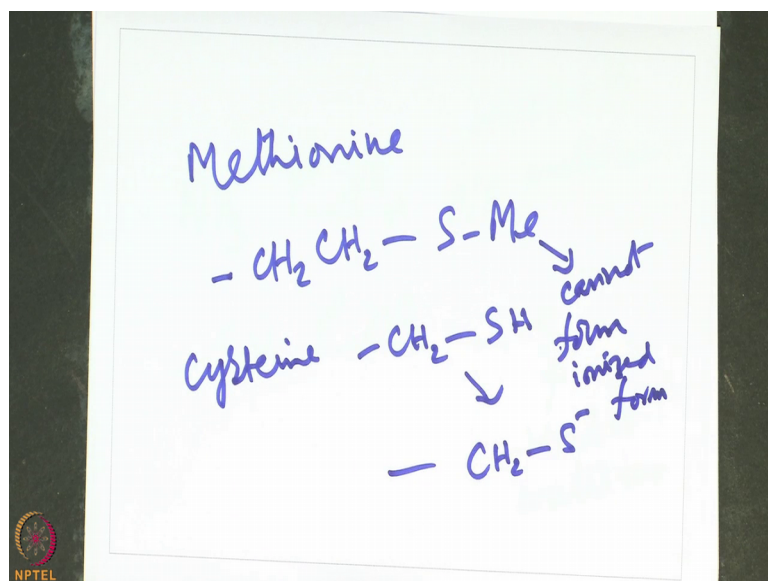 Methionine
- CH₂ CH₂ - S - Me
cannot
form
ionized
form
Cysteine - CH₂ - SH
- CH₂ - S⁻
NPTEL